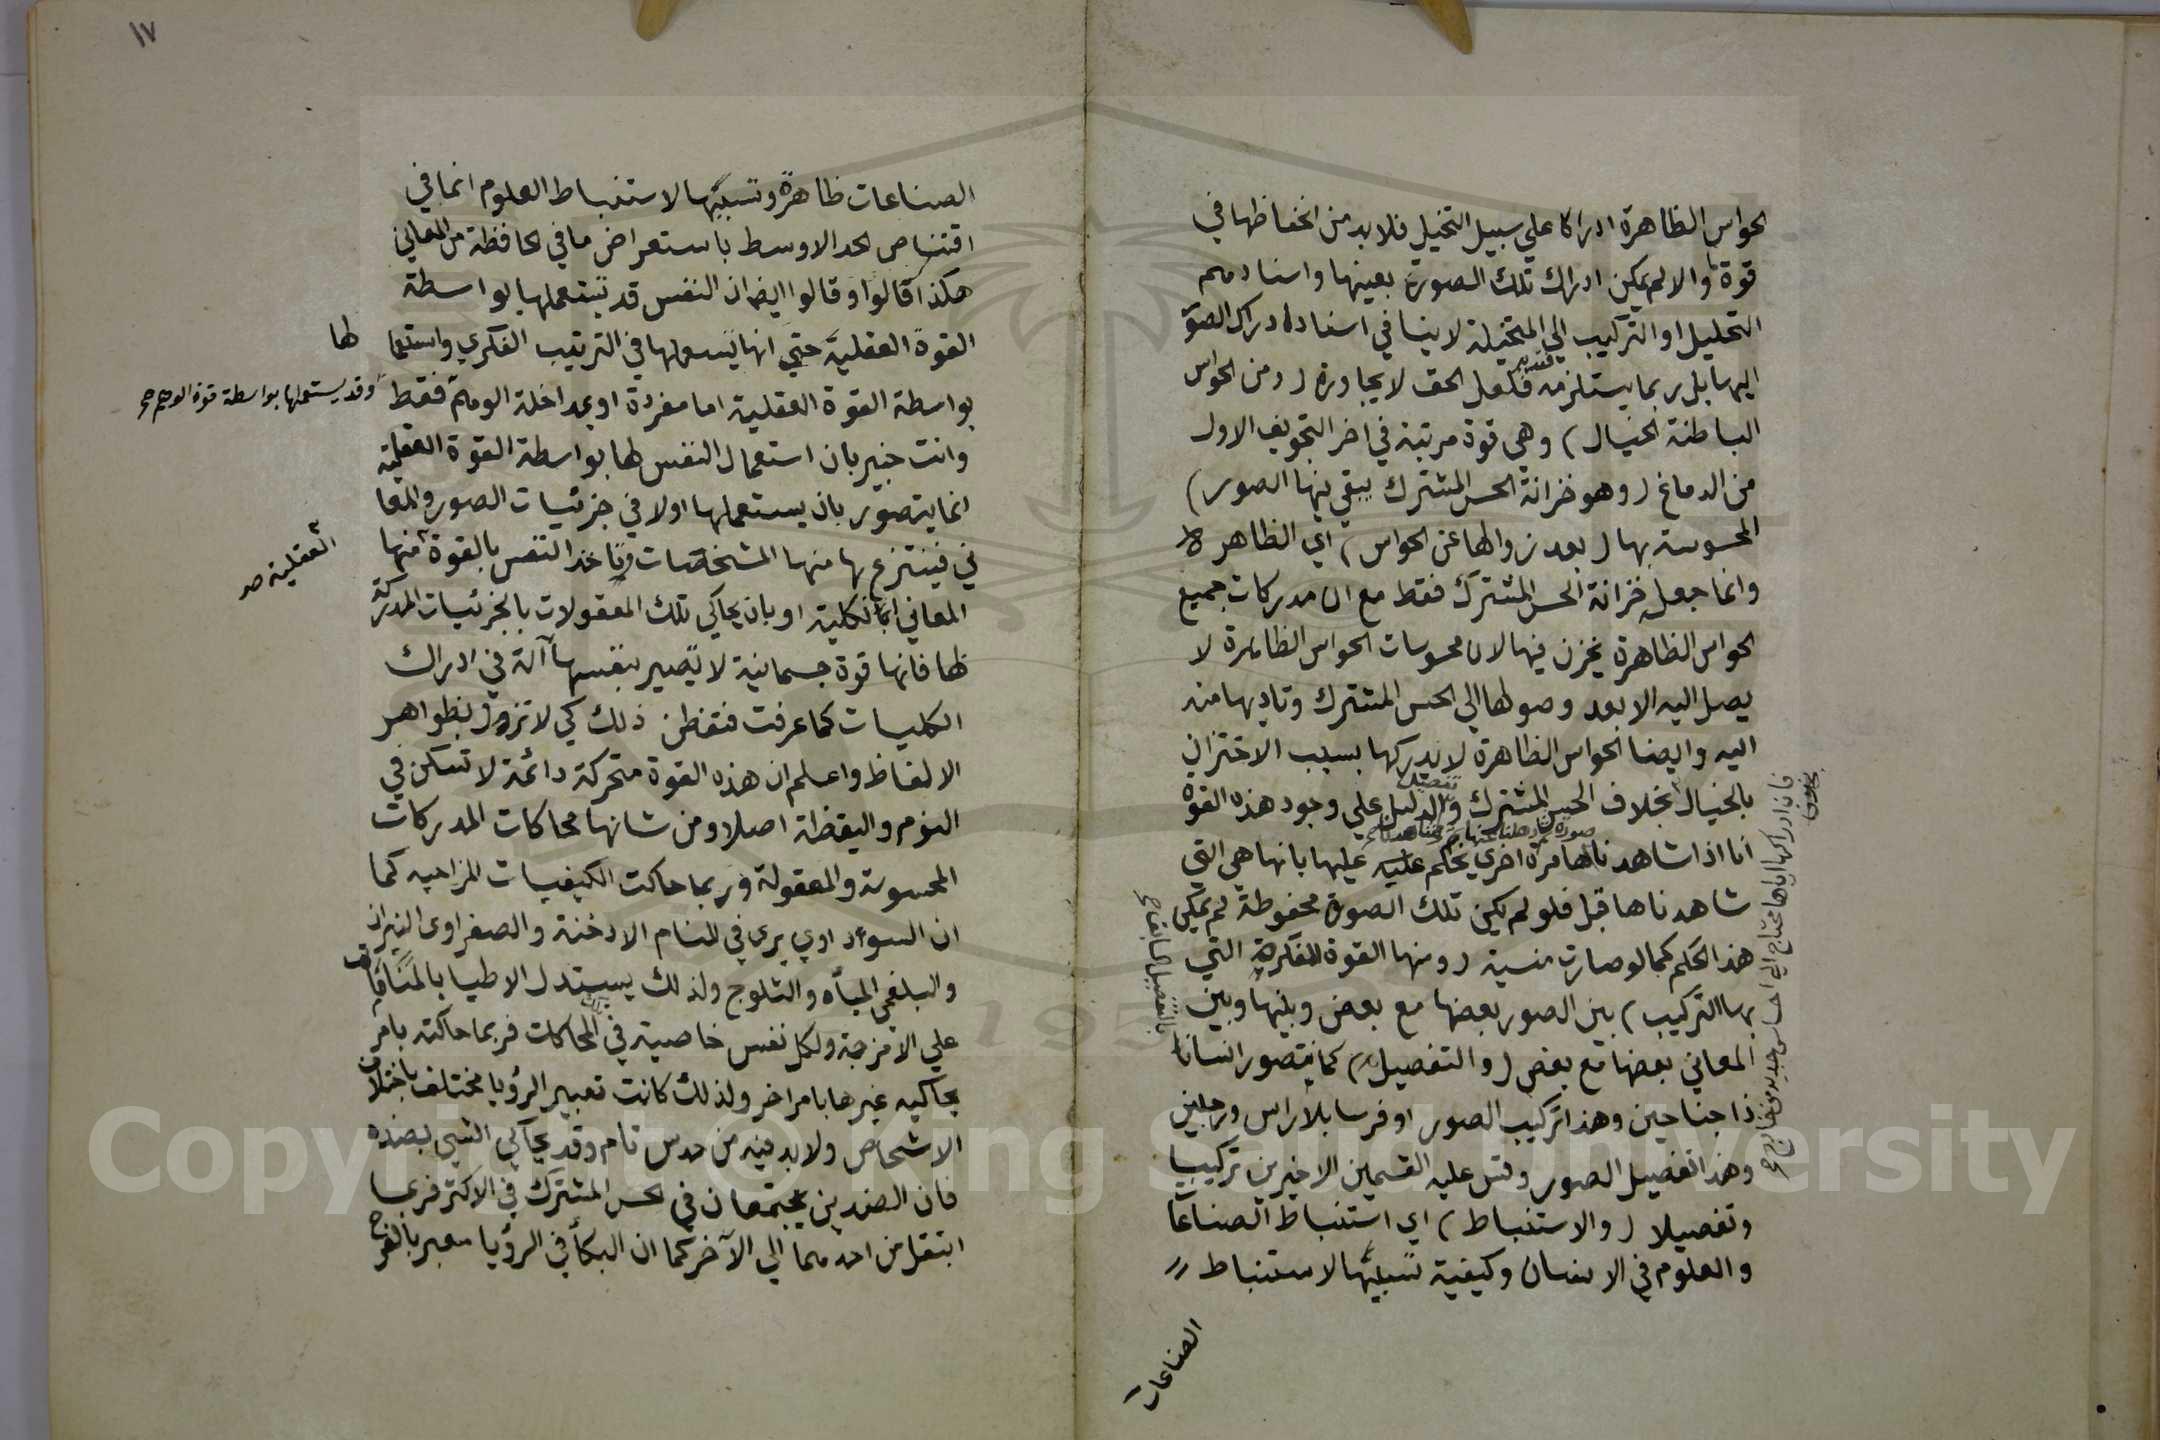 الحواس الظاهرة ادراكا علي سبيل التخيل فلابد من انحفاظها في
قوة ما والا لم يمكن ادراك تلك الصورة بعينها واسنادهم
التحليل او التركيب الي المتخيلة لا ينافي اسناد ادراك الصو
اليها بل ربما يستلزمه فلعل الحق لا يجاوزه (ومن الحواس
الباطنة الخيال) وهي قوة مرتبة في اخر التجويف الاول
من الدماغ (وهو خزانة الحس المشترك يبقي فيها الصور)
المحسوسة بها (بعد زوالها عن الحواس) اي الظاهر ة
وانما جعل خزانة الحس المشترك فقط مع ان مدركات جميع
الحواس الظاهرة يخزن فيها لان محسوسات الحواس الظاهرة لا
يصل اليه الا بعد وصولها الي الحس المشترك وتاديها منه
اليه وايضا الحواس الظاهرة لا يدركها بسبب الاختزان
بالخيال بخلاف الحس المشترك والدليل علي وجود هذه القوة
انا اذا شاهدناها مرة اخري يحكم عليه عليها بانها هي التي
شاهدناها قبل فلو لم يكن تلك الصورة محفوظة لم يمكن
هذا الحكم كما لو صارت منسية (ومنها القوة المفكرة التي
بها التركيب) بين الصور بعضها مع بعض وبينها وبين
المعاني بعضها مع بعض (والتفصيل) كما يتصور انسانا
ذا جناحين وهذا تركيب الصور او فرسا بلا راس ورجلين
وهذا تفصيل الصور وقس عليه القسمين الاخيرين تركيبا
وتفصيلا (والاستنباط) اي استنباط الصناعا
والعلوم في الانسان وكيفية تسببها لاستنباط
الصناعات
فان ادراكها اياها محتاج الي احساس جديد من خارج صح
١٧
الصناعات ظاهرة وتسببها لاستنباط العلوم انما في
اقتناص الحد الاوسط باستعراض ما في الحافظة من المعاني
هكذا قالوا وقالوا ايضا ان النفس قد تستعملها بواسطة
القوة العقلية حتي انها يستعملها في الترتيب الفكري واستعما
لها
بواسطة القوة العقلية اما مفردة او بمداخلة الوهم فقط
وقد يستعملها بواسطة قوة الوهم صح
وانت خبير بان استعمال النفس لها بواسطة القوة العقلية
انما يتصور بان يستعملها اولا في جزئيات الصور والمعا
ني فينتزع بها منها المشخصات وتاخذ النفس بالقوة منها
العقلية صح
المعاني الكلية او بان يحاكي تلك المعقولات بالجزئيات المدركة
لها فانها قوة جسمانية لا يصير بنفسها آلة في ادراك
الكليات كما عرفت فتفطن ذلك كي لا تزول بظواهر
الالفاظ واعلم ان هذه القوة متحركة دائمة لا تسكن في
النوم واليقظة اصلا ومن شانها محاكات المدركات
المحسوسة والمعقولة وربما حاكت الكيفيات المزاجيه كما
ان السوداوي يري في المنام الادخنة والصفراوي النيران
والبلغمي المياه والثلوج ولذلك يستدل الاطبا بالمنامات
علي الامزجة ولكل نفس خاصية في المحاكات فربما حاكته بامر
يحاكيه غيرها بامر اخر ولذلك كانت تعبير الرؤيا مختلف باختلاف
الاشخاص ولابد فيه من حدس تام وقد يحاكي الشيي بضده
فان الضدين يجتمعان في الحس المشترك في الاكثر فربما
انتقل من احدهما الي الآخر كما ان البكأ في الرؤيا معبر بالفرح
Copyright © King Saud University